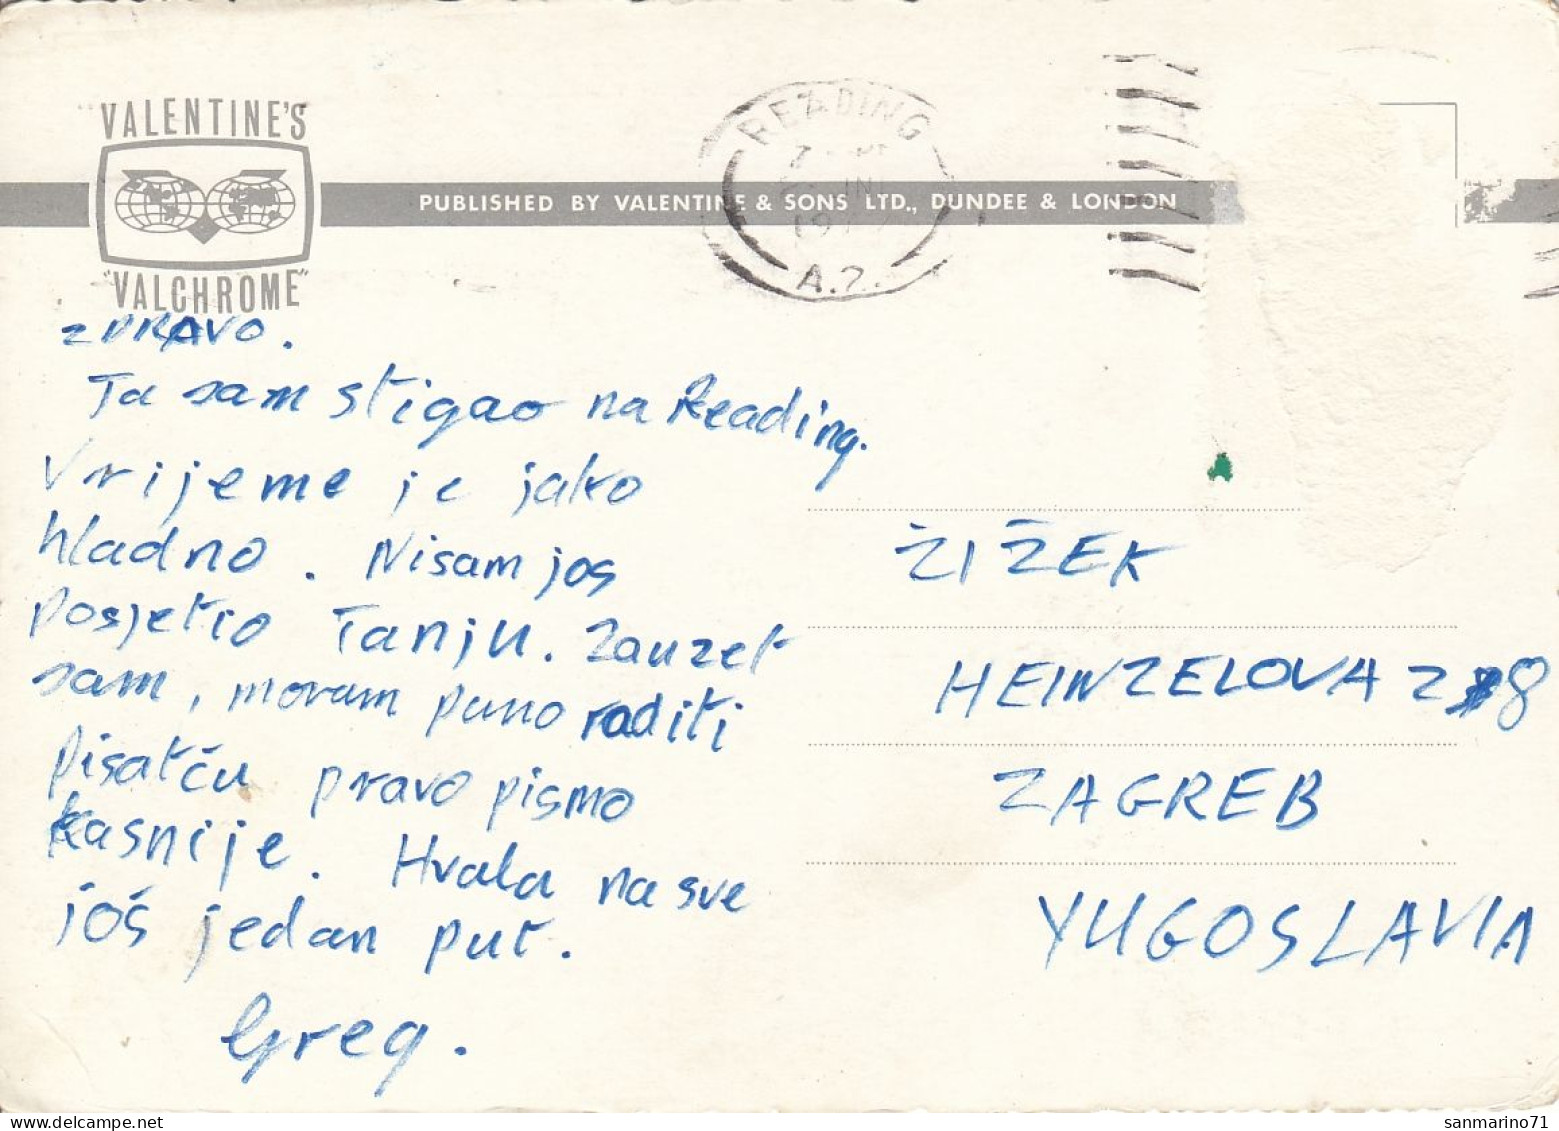 "VALENTINE'S
"VALCHROME"
PUBLISHED BY VALENTINE & SONS LTD., DUNDEE & LONDON
READING
A.2.
ZDRAVO.
Ja sam stigao na Reading.
Vrijeme je jako
hladno. Nisam jos
posjetio Tanju. Zauzet
sam, moram puno raditi
pisatću pravo pismo
kasnije. Hvala na sve
još jedan put.
Greg.
ŽIŽEK
HEINZELOVA 28
ZAGREB
YUGOSLAVIA
sanmarino71